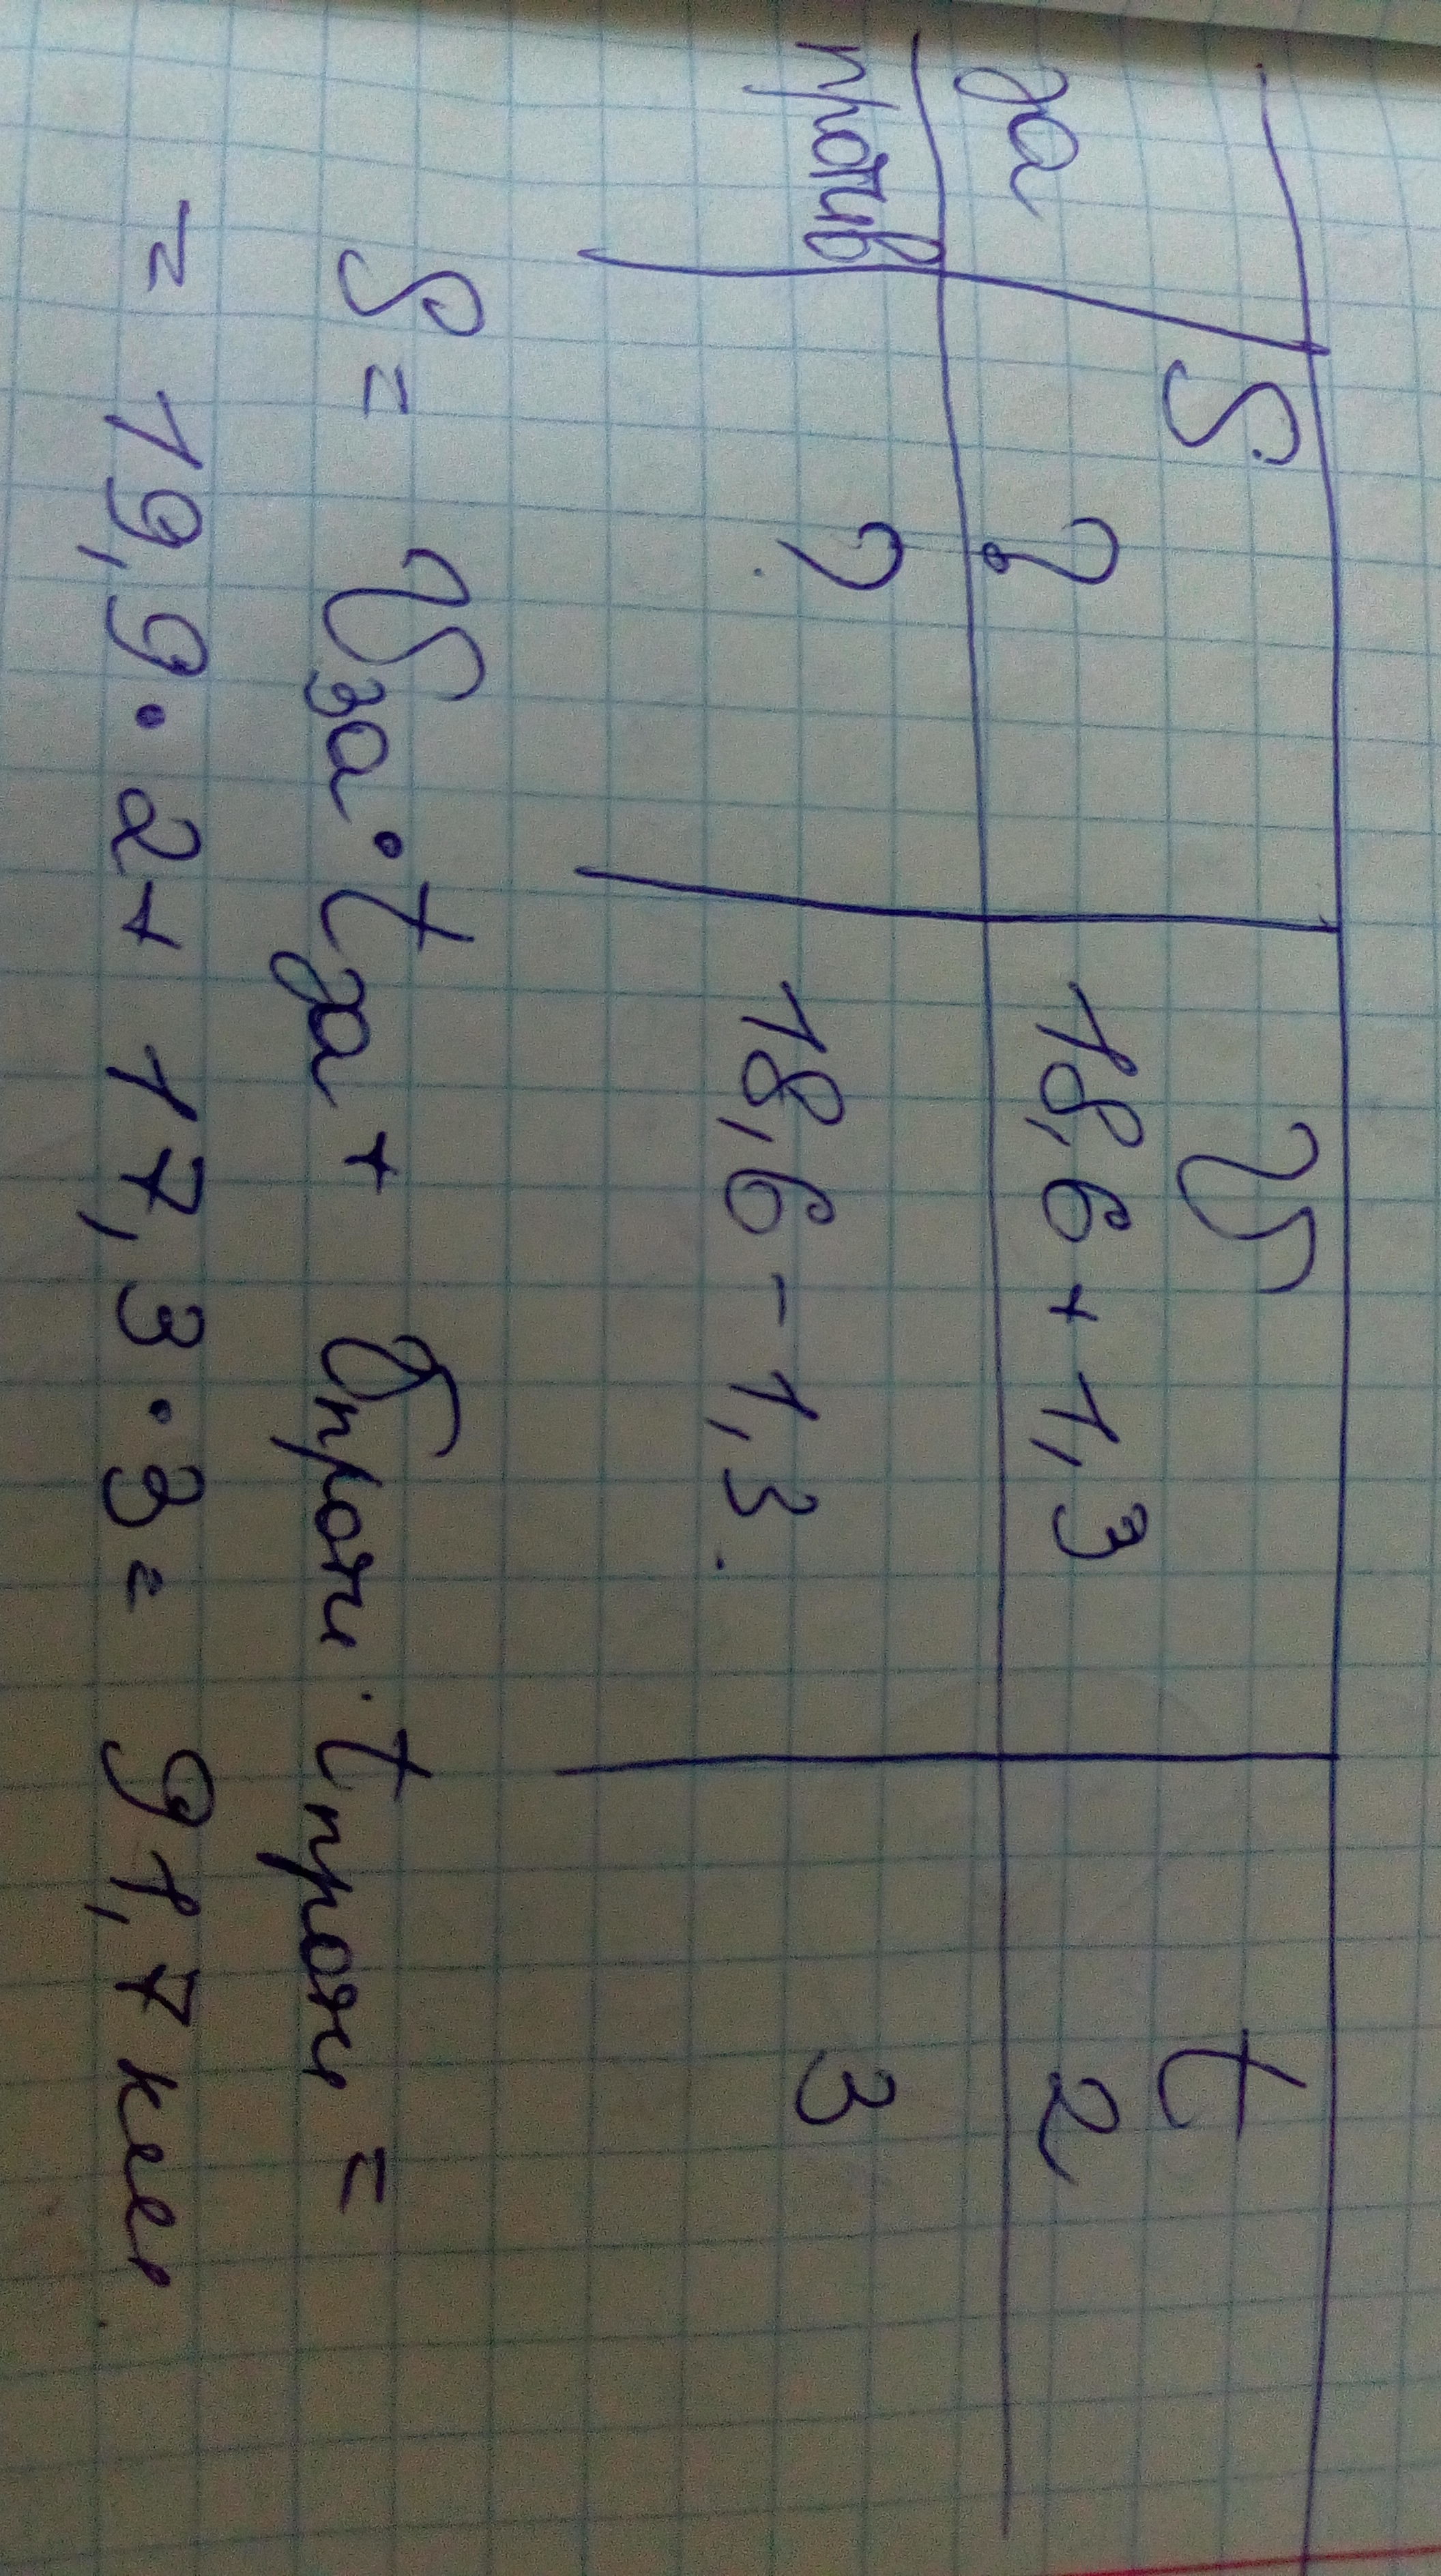 S V t
за ? 18,6 + 1,3 2
против ? 18,6 - 1,3. 3
S = Vза · tза + Vпроти · tпроти =
= 19,9 · 2 + 17,3 · 3 = 91,7 км